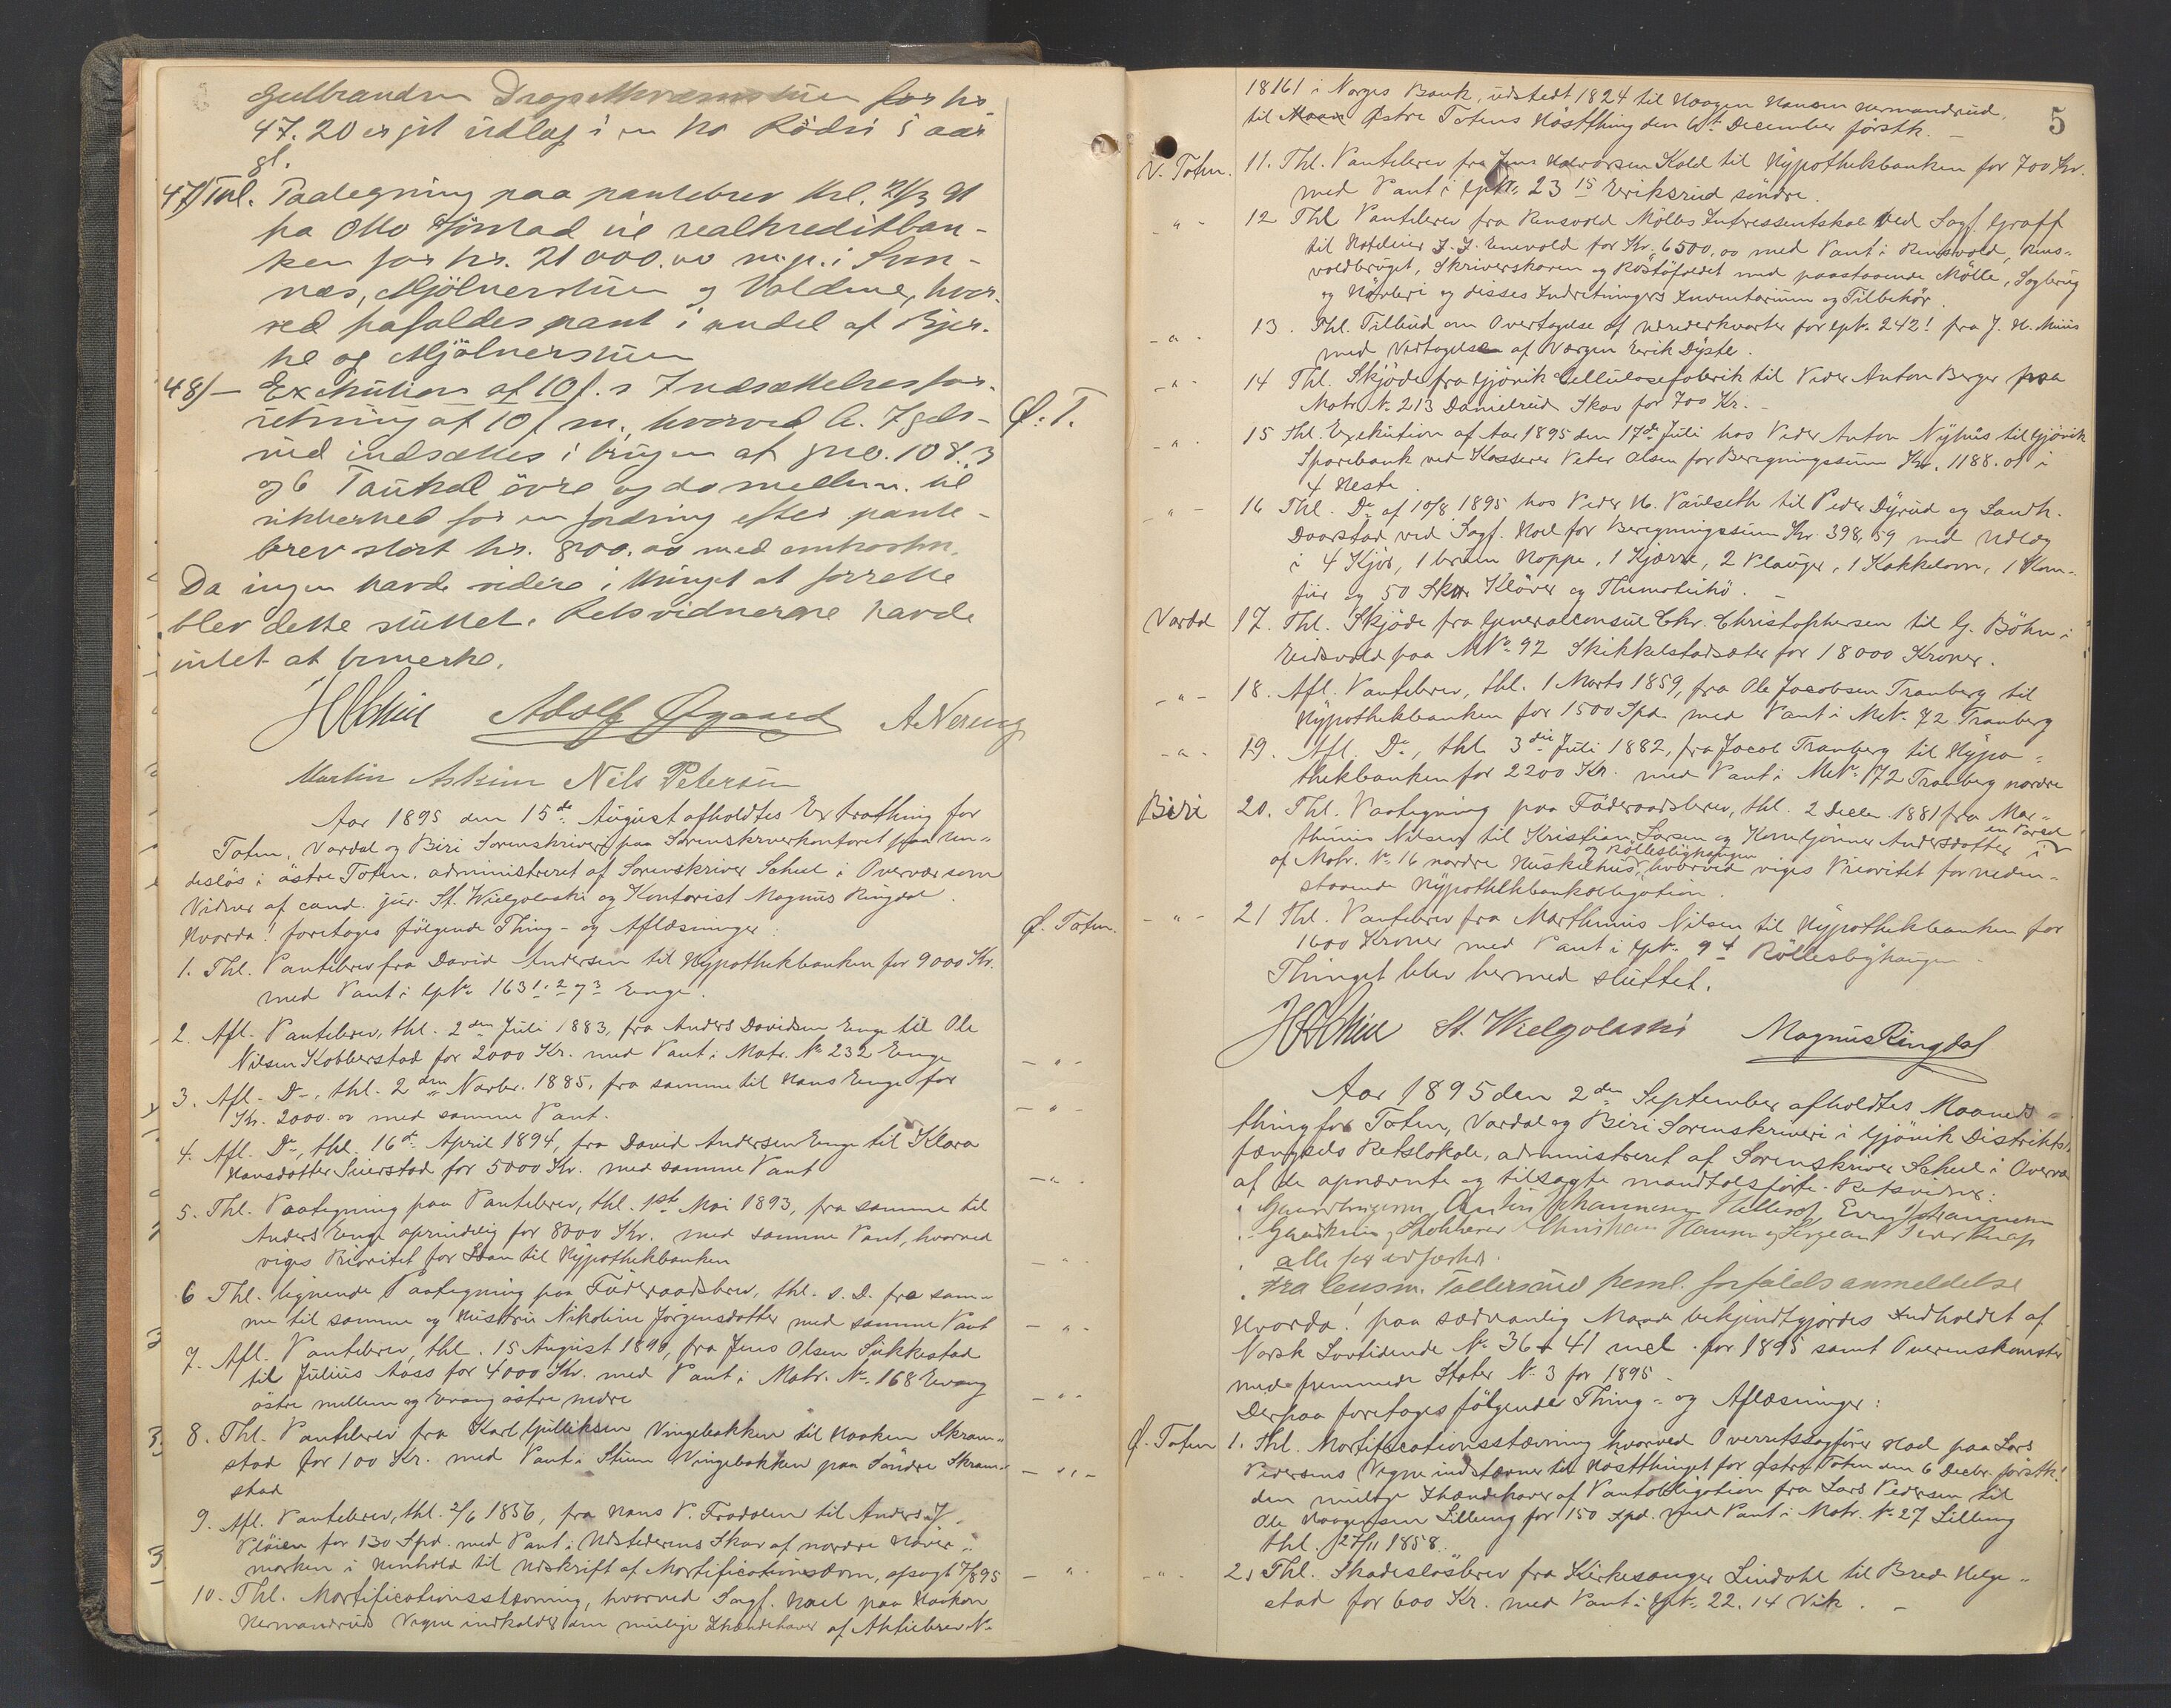 Gulbrandsen for kr
47.20 er gjt udlæg i en ko Rödsi 5 aar
gl.
47) Thl. Paategning paa pantebrev thl. 21/3 91
fra Otto til realkreditban-
ken for kr. 21000.00 m. p. i Svin-
næs, Mjölnerstuen og Valdene, hvor-
ved frafaldes pant i andel af Bjer-
ke og Mjölnerstuen
48) — Exekution af 10 f. s Indsættelsesfor-
retning af 10 f. m., hvorved A. Igels- Ø. T.
rud indsættes i brugen af gno. 108..3
og 6 Taukol övre og do mellem. til
sikkerhed for en fordring efter pante-
brev stort kr. 800.00 med omkostn.
Da ingen havde videre i thinget at forrette
blev dette sluttet. Retsvidnerne havde
intet at bemerke.
HSchiel Adolf Øgaard A Nereng
Martin Askim Nils Petersen
Aar 1895 den 15de August afholdtes Extrathing for
Toten, Vardal og Biri Sorenskriveri paa Sorenskriverkontoret paa Un-
deslös i östre Toten, administreret af Sorenskriver Schiel i Overvær som
Vidner af cand. jur. St. Wielgolaski og Kontorist Magnus Ringdal.
Hvorda! foretoges fölgende Thing- og Aflæsninger: Ø. Toten.
1. Thl. Pantebrev fra David Andersen til Hypothekbanken for 9000 Kr.
med Pant i Gpn. 163 1, 2 og 3 Enge.
2. Afl. Pantebrev, thl. 2den Juli 1883, fra Anders Davidsen Enge til Ole
Nilsen Kobberstad for 2000 Kr. med Pant i Matr. No 232 Enge - " -
3. Afl. Do, thl. 2den Novbr. 1885, fra samme til Hans Enge for
Kr. 2000.00 med samme Pant. - " -
4. Afl. Do, thl. 16de April 1894, fra David Andersen Enge til Klara
Hansdatter Sivestad for 5000 Kr. med samme Pant - " -
5. Thl. Paategning paa Pantebrev, thl. 1ste Mai 1893, fra samme til
Anders Enge oprindelig for 8000 Kr. med samme Pant, hvorved
viges Prioritet for Laan til Hypothekbanken - " -
6 Thl. lignende Paategning paa Föderaadsbrev, thl. s. D. fra sam-
me til samme og Hustru Nikoline Jørgensdatter med samme Pant - " -
7. Afl. Pantebrev, thl. 15 August 1890, fra Jens Olsen Sukkestad
til Julius Aass for 4000 Kr. med Pant i Matr. No. 168 Evang
östre mellem og Evang östre nedre - " -
8. Thl. Pantebrev fra Karl Gulliksen Vingebakken til Haaken Skram-
stad for 100 Kr. med Pant i Stuen Vingebakken paa Söndre Skram- - " -
stad
9. Afl. Pantebrev, thl. 2/6 1856, fra Hans P. Frodolen til Anders J.
Plöien for 130 Spd. med Pant i Udstederens Skov af nordre Höver-
marken i Henhold til Udskrift af Mortifikationsdom, afsagt 7/8 95 - " -
10. Thl. Mortifikationsstævning, hvorved Sagf. Hoel paa Haakon
Hermandruds Vegne indkalder den mulige Ihændehaver af Aktiebrev No
5
18161 i Norges Bank, udstedt 1824 til Haagen Hansen Hermandrud,
til Østre Totens Höstthing den 6te December förstk. -
V. Toten. 11. Thl. Pantebrev fra Jens Halvorsen Kold til Hypothekbanken for 700 Kr.
med Pant i Gpn. 23 15 Eriksrud söndre.
- " - 12 Thl Pantebrev fra Rensvold Mölles Interessentskab ved Sagf. Graff
til Hotelier J. J. Enevold for Kr. 6500.00 med Pant i Rensvold, Rens-
voldbruget, Skriverskoven og med paastaaende Mölle, Sagbrug
og Hövleri og disses Indretningers Inventarium og Tilbehör.
- " - 13. Thl. Tilbud om Overtagelse af Udrederkvarter for Gpn. 242 1 fra J. H. Miius
med Vedtagelse af Værgen Erik Dyste.
- " - 14 Thl. Skjöde fra Gjövik Cellulosefabrik til Peder Anton Berger paa
Matr. No 213 Danielrud Skov for 700 Kr. -
- " - 15 Thl. Exekution af Aar 1895 den 17de Juli hos Peder Anton Nyhus til Gjövik
Sparebank ved Kasserer Peter Olsen for Beregningssum Kr. 1188.01 i
4 Heste.
- " - 16 Thl. Do af 10/8 1895 hos Peder H. Paulseth til Peder Dyrud og Landh.
Daarstad ved Sagf. Hoel for Beregningssum Kr. 398,59 med Udlæg
i 4 Kjör, 1 brun Hoppe, 1 Kjærre, 2 Plouger, 1 Kakkelovn, 1 Kom-
fur og 50 Klöver og Thimoteihö. -
Vardal 17. Thl. Skjöde fra Generalconsul Chr. Christophersen til G. Böhn i
Eidsvold paa MNo 92 Skikkelstadsæter for 18000 Kroner.
- " - 18. Afl. Pantebrev, thl. 1 Marts 1859, fra Ole Jacobsen Tranberg til
Hypothekbanken for 1500 Spd. med Pant i MNo. 72 Tranberg
- " - 19. Afl. Do, thl. 3die Juli 1882, fra Jacob Tranberg til Hypo-
thekbanken for 2200 Kr. med Pant i MNo 172 Tranberg nordre
Biri 20. Thl. Paategning paa Föderaadsbrev, thl. 2 Decbr. 1881 fra Mar-
thinus Nilsen til Kristian Larsen og Kone Gunner Andersdatter i en Parsel
af Matr. No. 16 nordre Huskelhus og Röllesbyhaugen, hvorved viges Prioritet for neden-
staaende Hypothekbankobligation.
- " - 21 Thl. Pantebrev fra Marthinus Nilsen til Hypothekbanken for
1600 Kroner med Pant i Gpn. 9 4 Röllesbyhaugen
Thinget blev hermed sluttet.
HSchiel St. Wielgolaski Magnus Ringdal
Aar 1895 den 2den September afholdtes Maaneds-
thing for Toten, Vardal og Biri Sorenskriveri i Gjövik Distrikts-
fængsels Retslokale, administreret af Sorenskriver Schiel i Overvær
af de opnævnte og tilsagte mandtalsförte Retsvidner:
Johannesen Johannesen
Christian Hansen og Sergeant Peder
alle
Fra Lensm. Tollersrud freml. forfaldsanmeldelse
Hvorda! paa sædvanlig Maade bekjendtgjordes Indholdet af
Norsk Lovtidende No 36 til 41 incl. for 1895 samt Overenskomster
med fremmede Stater No. 3 for 1895 -
Derpaa foretoges fölgende Thing- og Aflæsninger:
Ø. Toten 1. Thl. Mortifikationsstævning hvorved Overretssagförer Hoel paa Lars
Pedersens Vegne indstævner til Höstthinget for östre Toten den 6 Decbr. förstk.
den mulige Ihændehaver af Pantobligation fra Lars Pedersen til
Ole Haagensen Lilleeng for 150 Spd. med Pant i Matr. No 27 Lilleeng
thl. 27/11 1858.
- " - 2. Thl. Skadeslösbrev fra Kirkesanger Lindahl til Brede Helge-
stad for 600 Kr. med Pant i Gpn. 22. 14 Vik. -